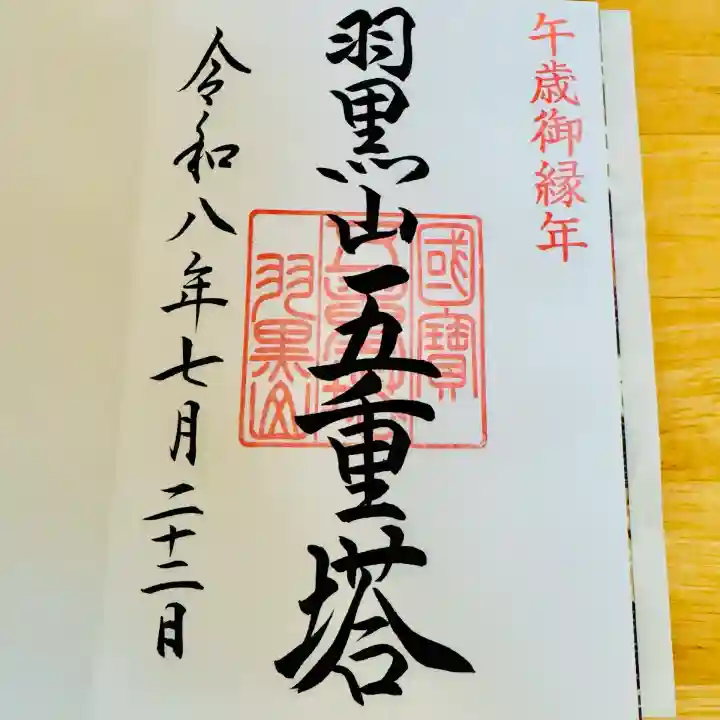 午歳御縁年
羽黒山五重塔
國寶
羽黒山
令和八年七月二十二日